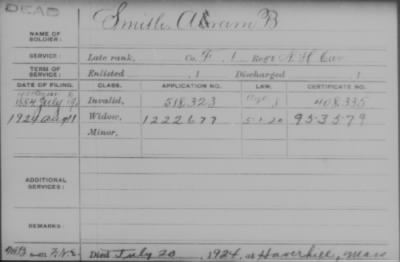 DEAD
Smith, Abram B
NAME OF SOLDIER:
SERVICE: Late rank, Co. F, 1 Reg't N H Cav
TERM OF SERVICE: Enlisted , 1 Discharged , 1
DATE OF FILING. CLASS. APPLICATION NO. LAW. CERTIFICATE NO.
1884 July 19 Invalid, 518,323 408,335
1924 Aug 11 Widow, 1222677 5-1-20 953579
Minor,
ADDITIONAL SERVICES:
REMARKS:
Died July 20, 1924, at Haverhill, Mass